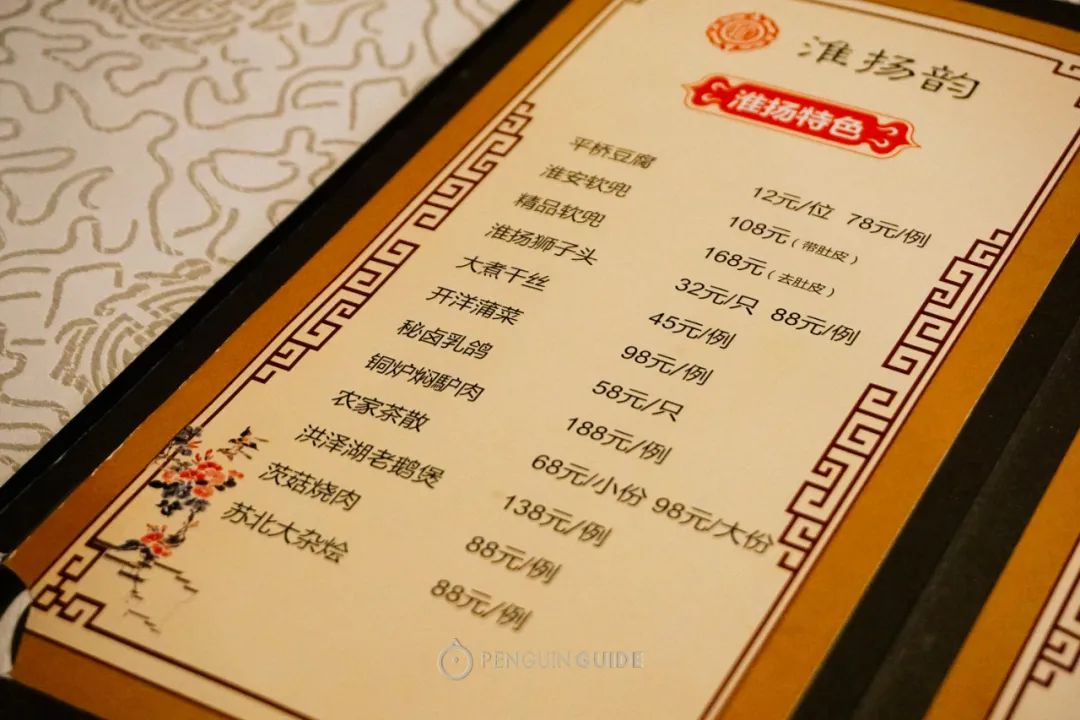 淮扬韵
淮扬特色
平桥豆腐 12元/位 78元/例
淮安软兜 108元（带肚皮）
精品软兜 168元（去肚皮）
淮扬狮子头 32元/只 88元/例
大煮干丝 45元/例
开洋蒲菜 98元/例
秘卤乳鸽 58元/只
铜炉焖驴肉 188元/例
农家茶散 68元/小份 98元/大份
洪泽湖老鹅煲 138元/例
茨菇烧肉 88元/例
苏北大杂烩 88元/例
PENGUIN GUIDE